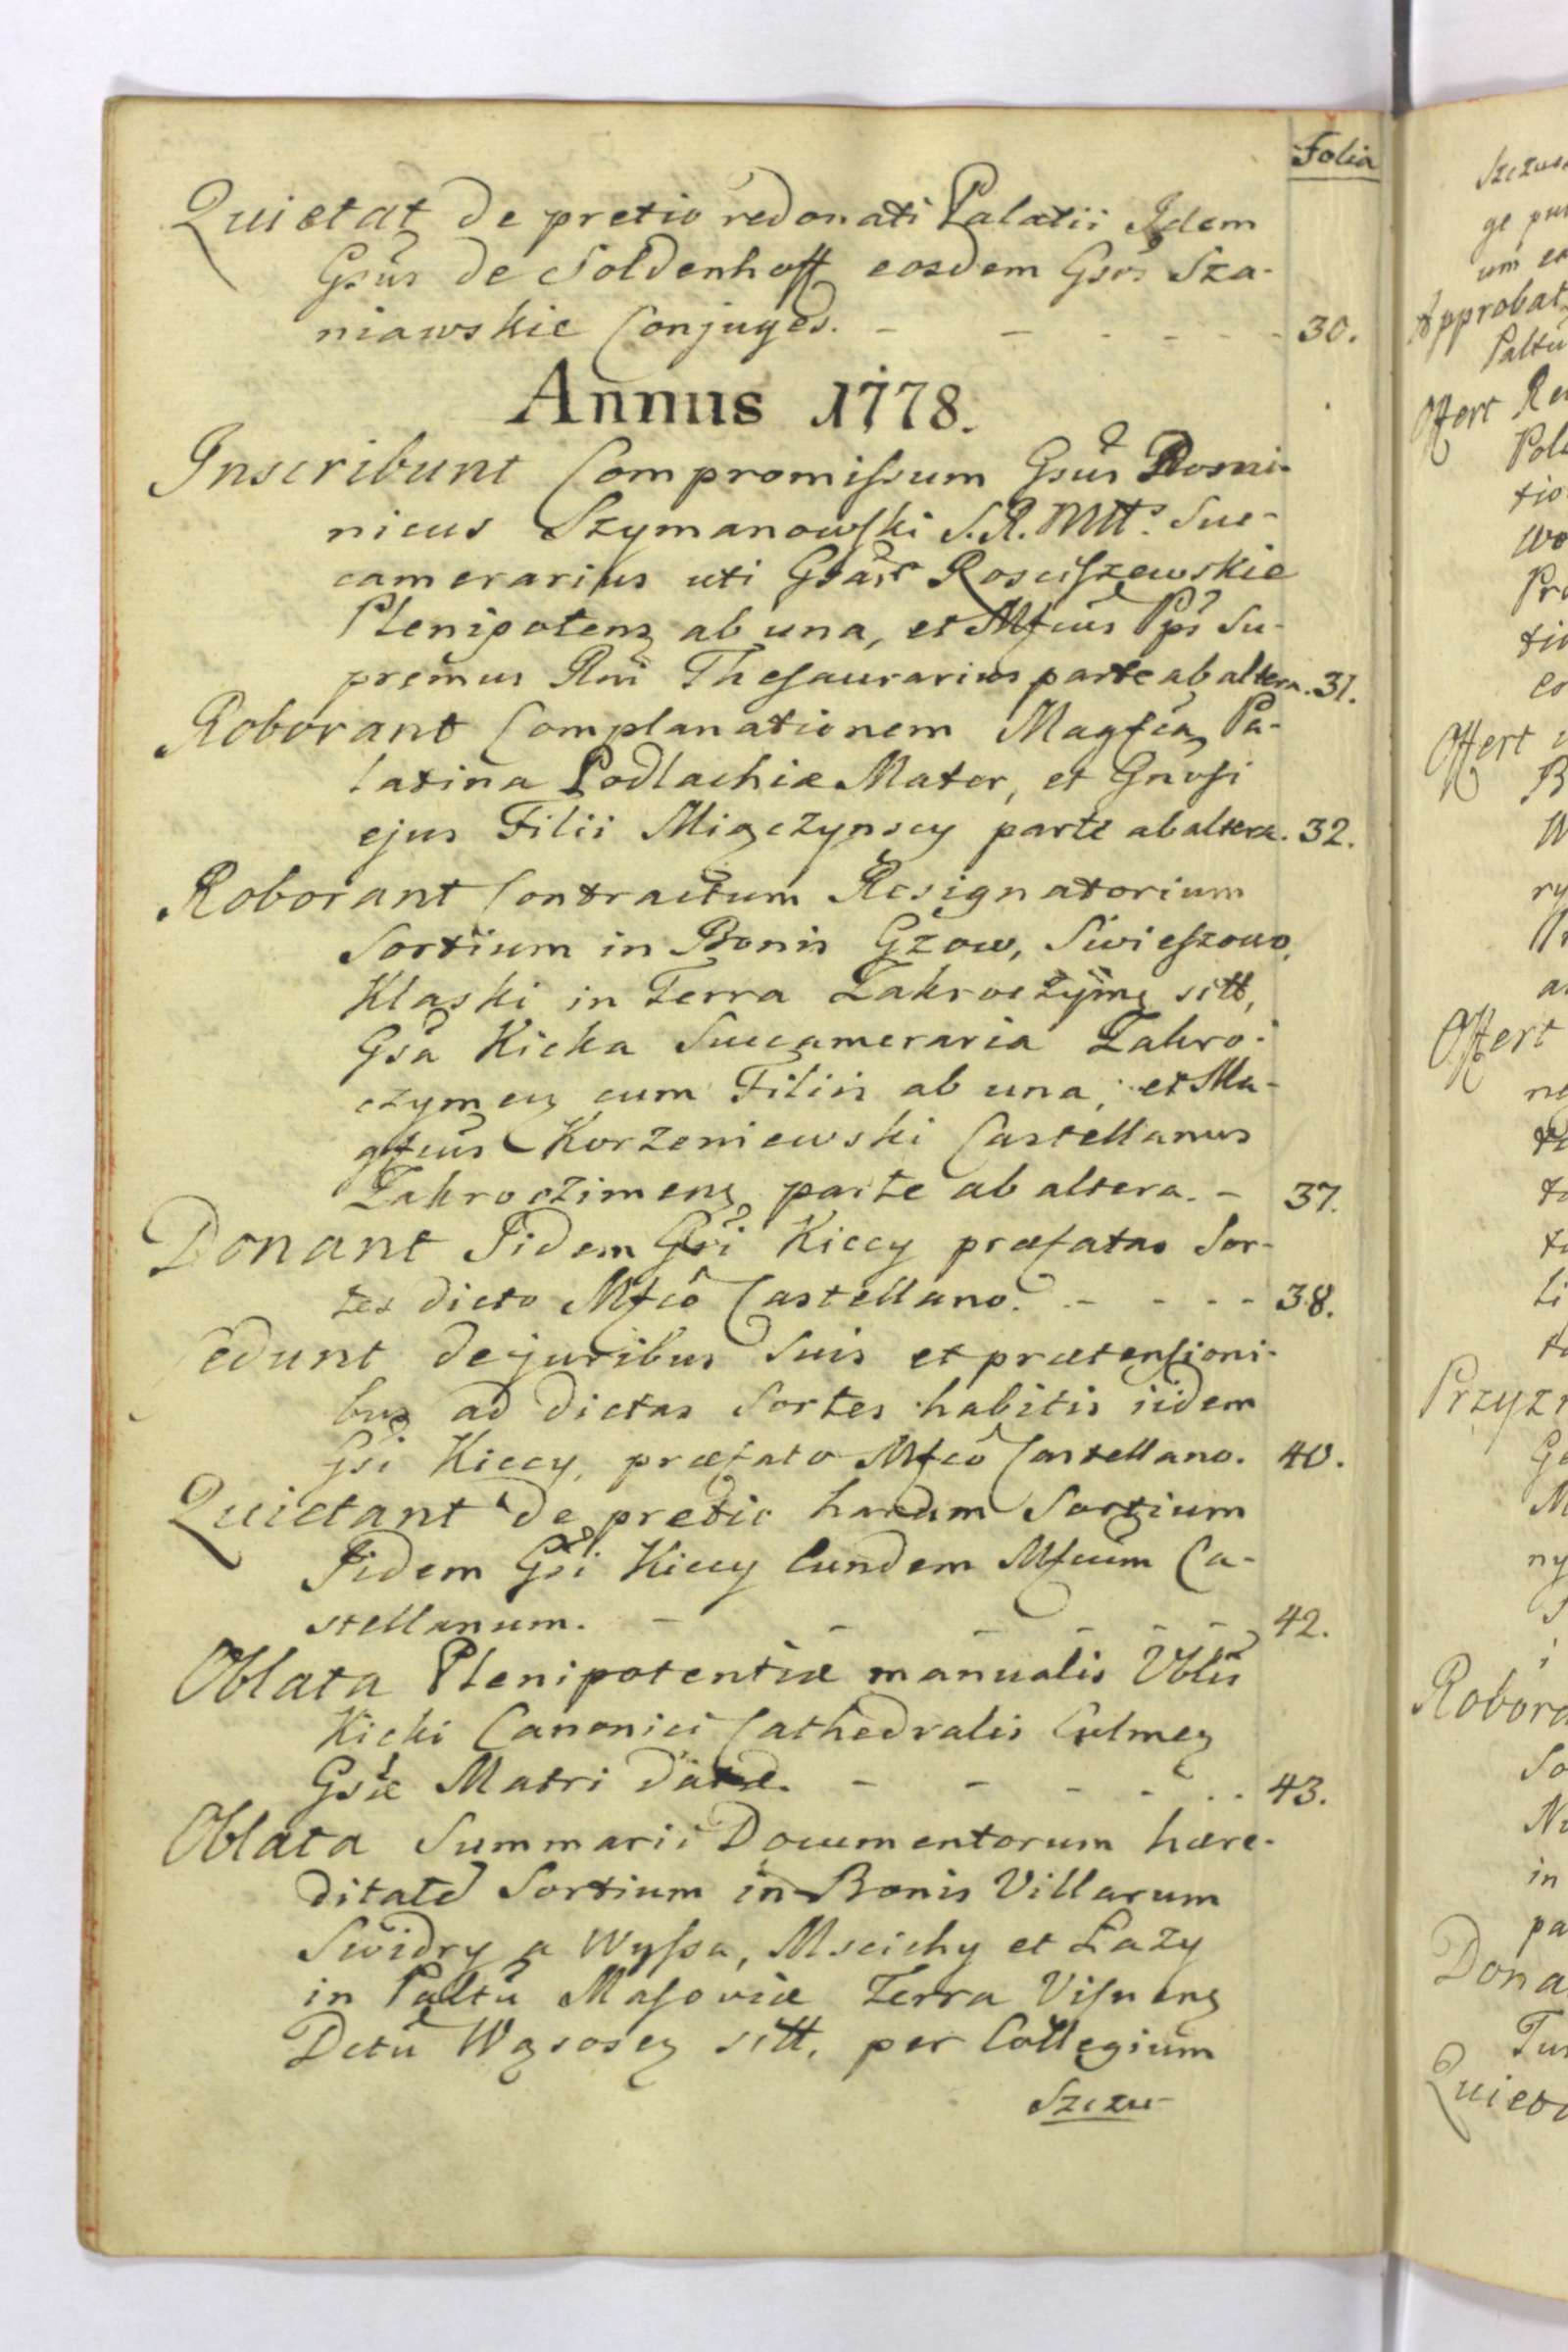 Folia
Quietat de pretio redonati Palatii Idem
Gsus de Soldenhoff eosdem Gsos Sza-
niawskie Conjuges. - - - - - - 30.
Annus 1778.
Inscribunt Compromissum Gsus Domi-
nicus Szymanowski S.R. Mtt. Suc-
camerarius uti Gsar Rosciszewskie
Plenipotens ab una, et Mfcus Pps Su-
premus Rni Thesaurarius parte ab altera. 31.
Roborant Complanationem Magfca Pa-
latina Podlachiæ Mater, et Gnosi
ejus Filii Miączynscy parte ab altera. 32.
Roborant Contractum Resignatorium
Sortium in Bonis Gzow, Swieszowo,
Klaski in Terra Zakroczyme sitt,
Gsa Kicka Succameraria Zakro-
czymen cum Filiis ab una, et Ma-
gfcus Korzeniewski Castellanus
Zakroczimens parte ab altera. - 37.
Donant Iidem Gsi Kiccy præfatas Sor-
tes dicto Mfco Castellano. - - - - 38.
Cedunt de juribus suis et prætensioni-
bus ad dictas Sortes habitis iidem
Gsi Kiccy, præfato Mfco Castellano. 40.
Quietant de pretio harum Sortium
Iidem Gsi Kiccy Eundem Mfcum Ca-
stellanum. - - - - - - 42.
Oblata Plenipotentiæ manualis
Kicki Canonici Cathedralis Culmen
Gsæ Matri datæ. - - - - . . 43.
Oblata Summarii Documentorum hære-
ditate Sortium in Bonis Villarum
Swidry a Wyssa, Mscichy et Łazy
in Paltu Masoviæ Terra Visnens
Dctu Wąsosen sitt, per Collegium
Szczu-
Szczu
ge
um
Approbat
Paltu
Offert
Pol
tio
Wo
Pr
Offert
B
W
ry
Offert
ne
Przyz
Ge
ny
Robora
So
in
pa
Dona
Quiet